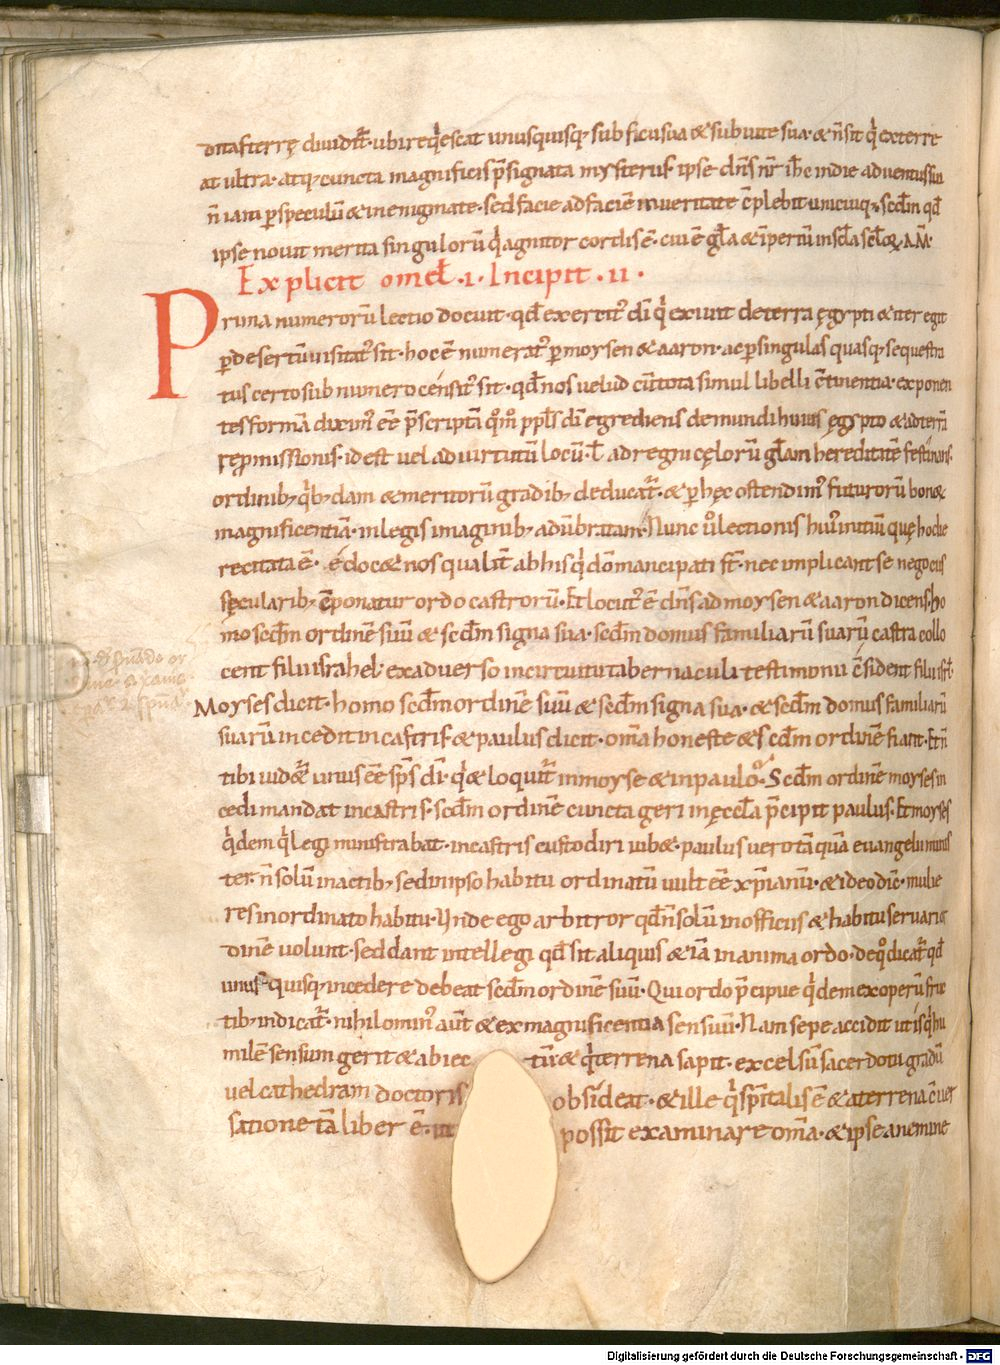 ditas terrę diuidit̃· ubi reqͥescat unusquisq; sub ficu sua & sub uite sua· & ñ sit qͥ exterre
at ultra· atq; cuncta magnificis p̃signata mysteriis ipse dn̄s nr̄ ih̄c in die aduentus sui
ñ iam ꝑ speculū & in enigmate· sed facie ad faciē in ueritate c̄plebit· unicuiq; scd̄m qd̄
ipse nouit merita singulorū qͥ agnitor cordis ē· cui ē gl̄a & im̄periū in scl̄a scl̄oꝝ· AM̄·
Explicit omel̄ ·i· Incipit ·ii·
Prima numerorū lectio docuit· qd̄ exercitꝰ dī qͥ exiuit de terra ęgypti & iter egit
ꝑ desertū uisitatꝰ sit· hoc ē numeratꝰ ꝑ moysen & aaron· ac ꝑ singulas quasq; sequestra
tus certo sub numero censitꝰ sit· qd̄ nos uelud cū tota simul libelli c̄tinentia· exponen
tes formā diximꝰ eē p̃scriptā qͦmͦ ppl̄s dī egrediens de mundi huius ęgypto & ad terrā
rępmissionis· id est uel ad uirtutū locū· ł ad regni cęlorū gl̄am hereditatē festinans·
ordinib; qͥb;dam & meritorū gradib; deducat̃· & ꝑ hęc ostendimꝰ futurorū bonoꝝ
magnificentiā· in legis imaginib; adūbratam· Nunc uͦ lectionis huiꝰ initiū quę hodie
recitata ē· edoc& nos qualit̃ ab his qͥ dō mancipati st̄· nec implicant se negociis
sęcularib; c̄ponatur ordo castrorū· Et locutꝰ ē dn̄s ad moysen & aaron dicens· ho
mo scd̄m ordinē suū & scd̄m signa sua· scd̄m domus familiarū suarū castra collo
cent filii israhel· ex aduerso in circuitu tabernaculi testimonii c̄sident filii isrl̄·
Moyses dicit· homo scd̄m ordinē suū & scd̄m signa sua· & scd̄m domus familiarū
suarū incedit in castris· & paulus dicit· om̄a honeste & scd̄m ordinē fiant· Et ñ
tibi uid&̃ unus eē sp̄s dī· qͥ & loquit̃ in moyse & in paulo· Scd̄m ordinē moyses in
cedi mandat in castris· scd̄m ordinē cuncta geri in ęccl̄a p̃cipit paulus· Et moyses
qͥdem qͥ legi ministrabat· in castris custodiri iub&· paulus uero tā quā euangelii minis
ter· ñ solū in actib; sed in ipso habitu ordinatū uult eē xp̄ianū· & ideo dic̄· mulie
res in ordinato habitu· Unde ego arbitror qd̄ ñ solū in officiis & habitu seruari or
dinē uolunt· sed dant intellegi qd̄ sit aliquis & iā in anima ordo· de qͦ dicat̃ qd̄
unusquisq; incedere debeat scd̄m ordinē suū· Qui ordo p̃cipue qͥdem ex operū fruc
tib; indicat̃· nihilominꝰ aūt & ex magnificentia sensuū· Nam sepe accidit ut is qͥ hu
milē sensum gerit & abiec tū· & qͥ terrena sapit· excelsū sacerdotii gradū
uel cathedram doctoris obsideat· & ille qͥ sp̄italis ē & a terrena c̄uer
satione tā liber ē· ut possit examinare om̄a· & ipse a nemine